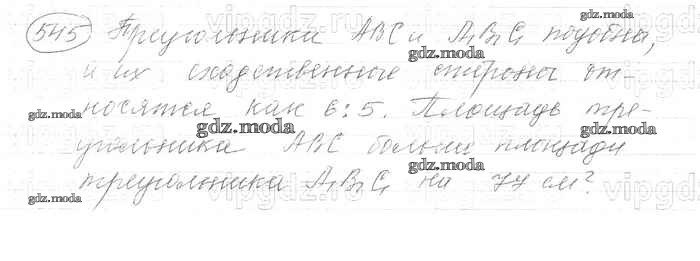 545 Треугольники ABC и A₁B₁C₁ подобны,
и их сходственные стороны от-
носятся как 6:5. Площадь тре-
угольника ABC больше площади
треугольника A₁B₁C₁ на 77 см²
gdz.moda
gdz.moda
gdz.moda
gdz.moda
gdz.moda
gdz.moda
gdz.moda
gdz.moda
gdz.moda